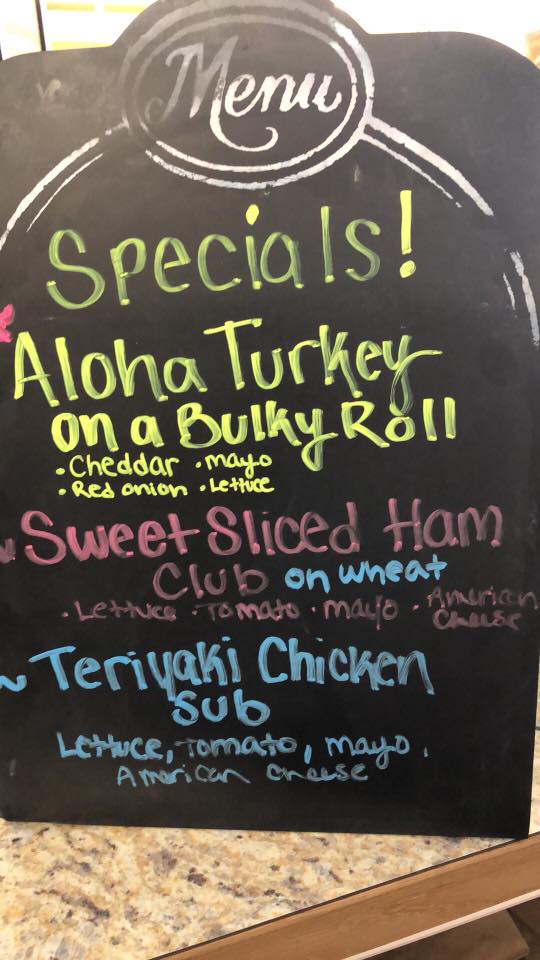 Menu
Specials!
Aloha Turkey
on a Bulky Roll
• Cheddar • mayo
• Red onion • Lettuce
~ Sweet Sliced Ham
Club on wheat
• Lettuce • Tomato • mayo • American
Cheese
~ Teriyaki Chicken
Sub
Lettuce, Tomato, mayo,
American cheese